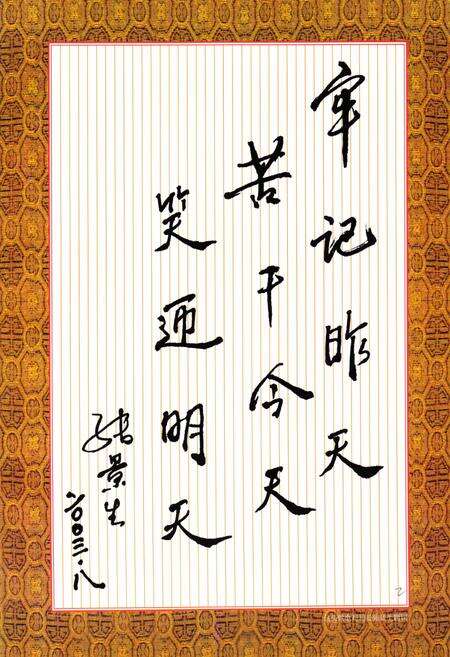 牢记昨天
苦干今天
笑迎明天
张景生
二〇〇三.八
2